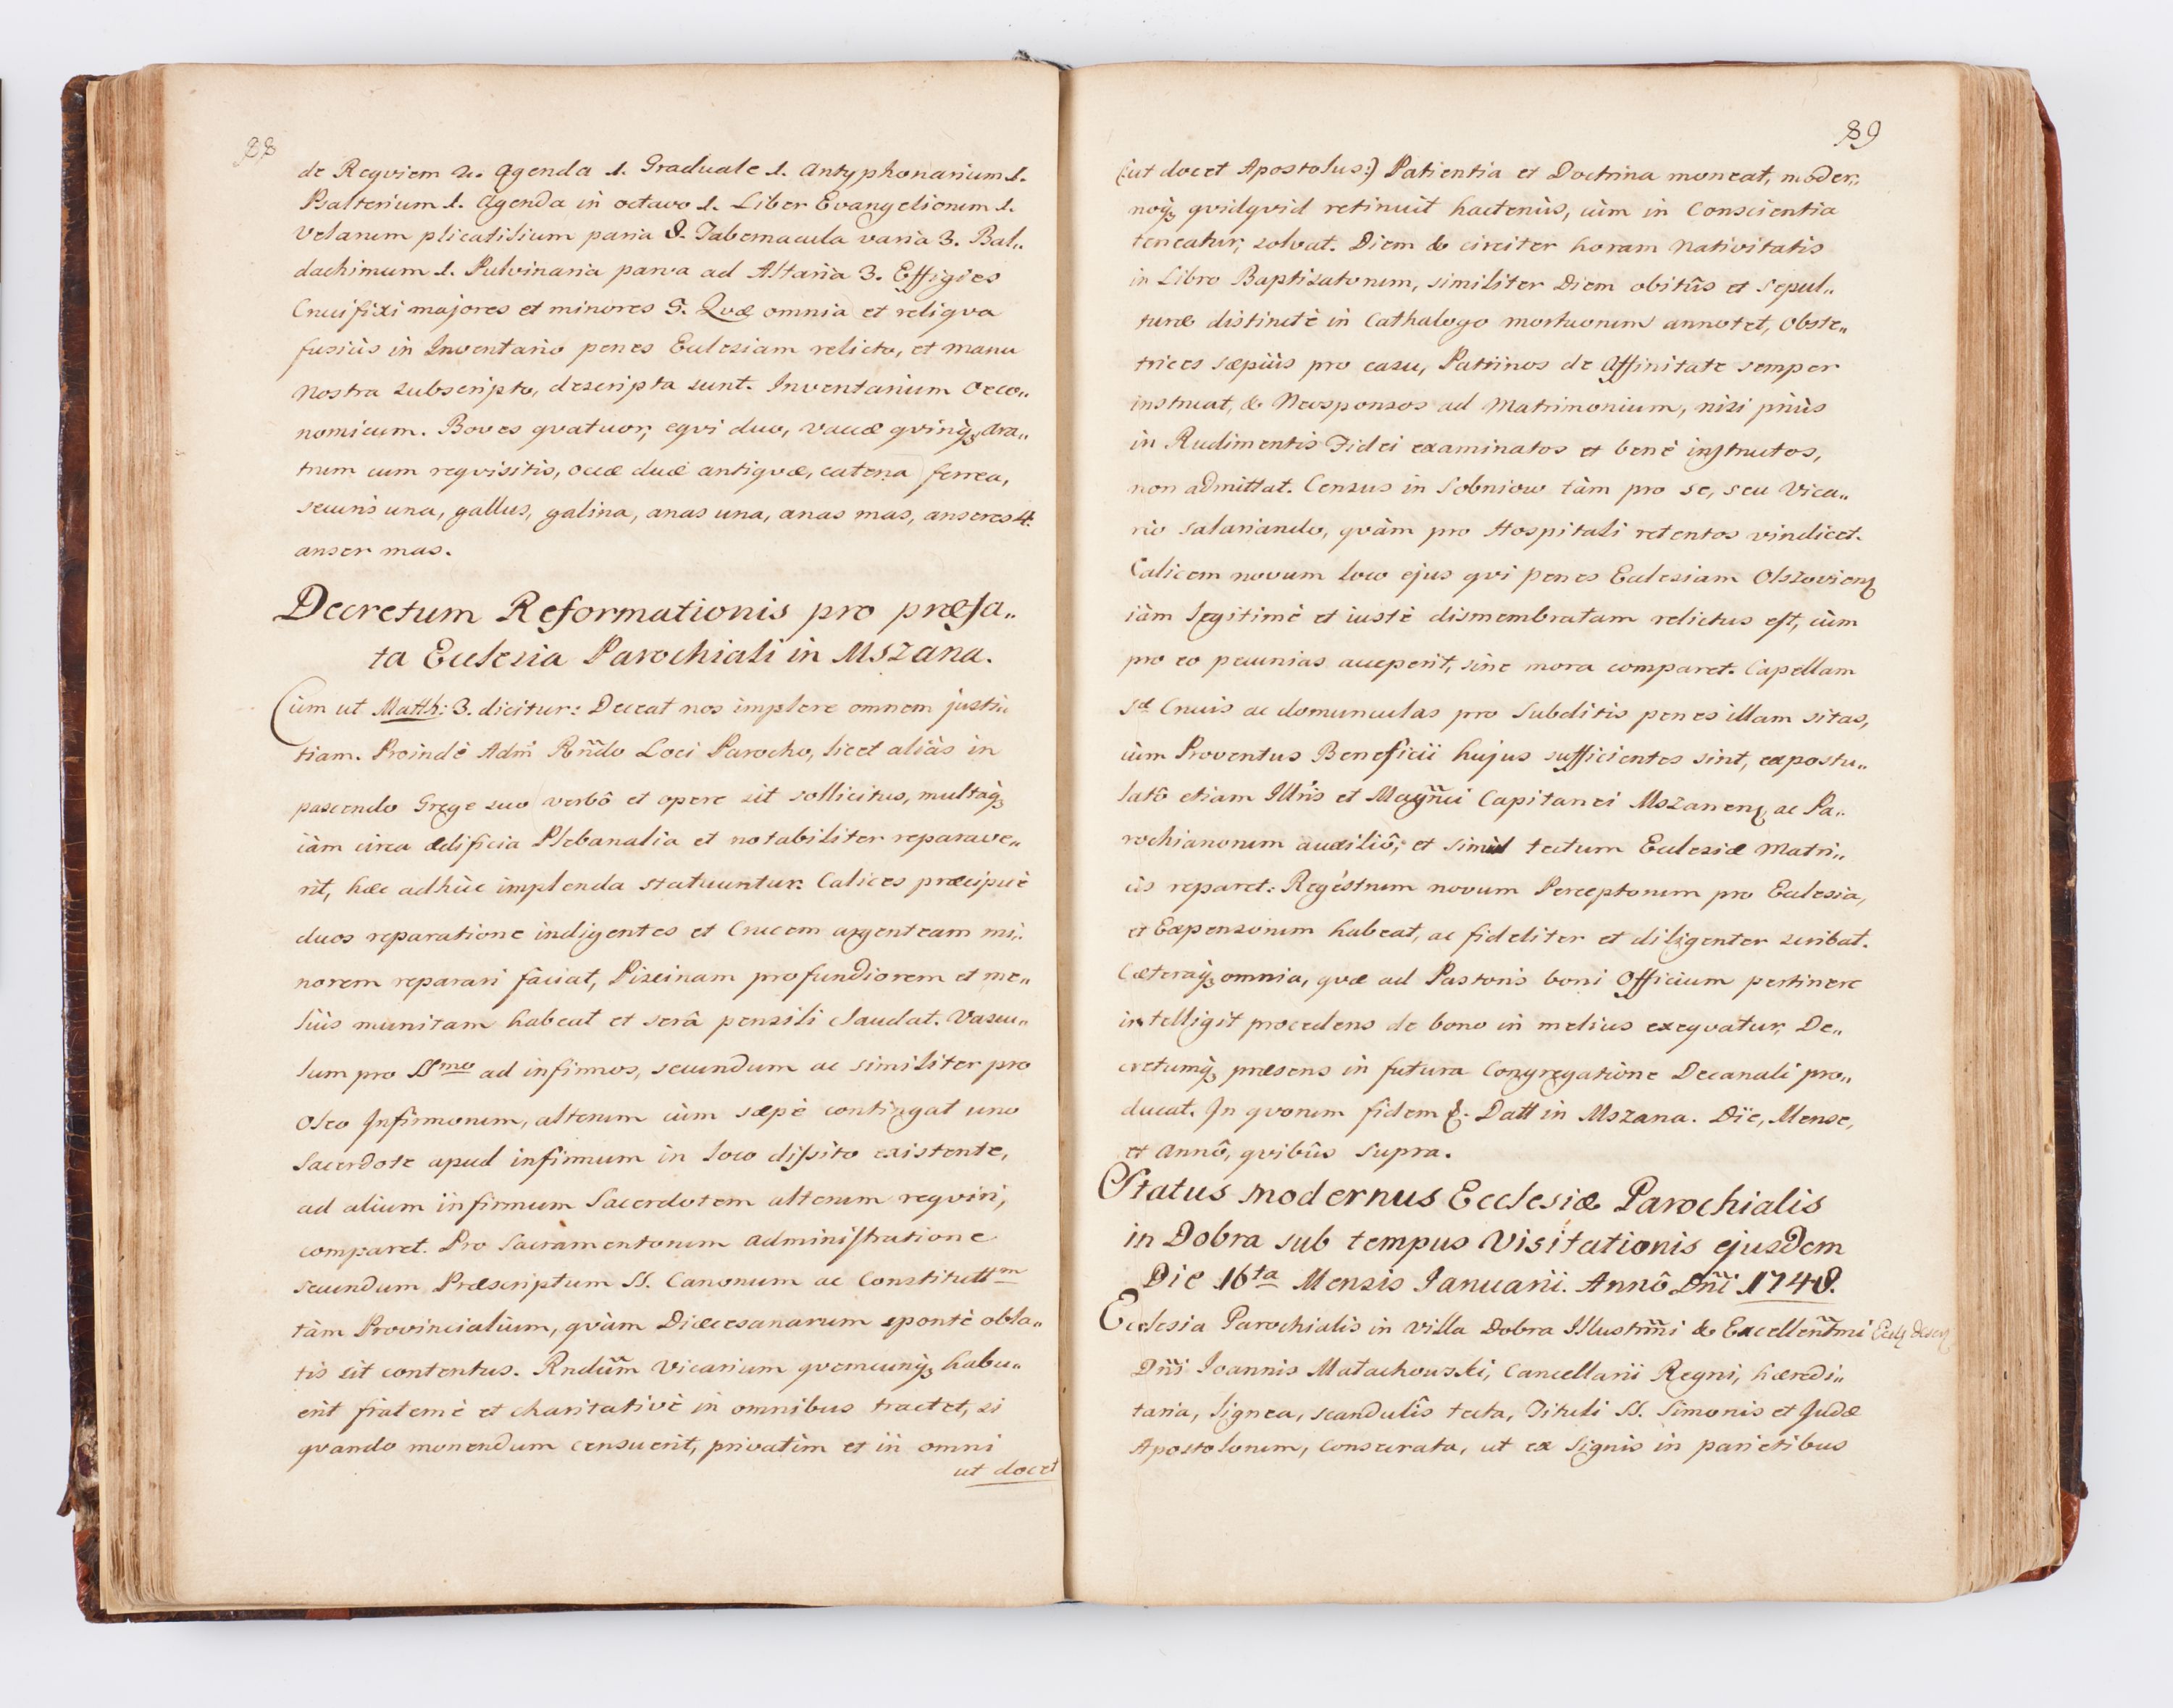 88
de Reqviem 2. Agenda 1. Graduale 1. Antyphonarium 1.
Psalterium 1. Agenda in octavo 1. Liber Evangeliorum 1.
Velarum plicatilium paria 8. Tabernacula varia 3. Bal„
dachimum 1. Pulvinaria parva ad Altaria 3. Effigies
Crucifixi majores et minores 5. Qvæ omnia et reliqva
fusiùs in Inventario penes Ecclesiam relicto, et manu
Nostra subscripto, descripta sunt. Inventarium Oeco„
nomicum. Boves qvatuor, eqvi duo, vaccæ qvinq₃ ara„
trum cum reqvisitis, occæ duæ antiqvæ, catena ferrea,
securis una, gallus, galina, anas una, anas mas, anseres 4.
anser mas.
Decretum Reformationis pro præfa„
ta Ecclesia Parochiali in Mszana.
Cùm ut Matth: 3. dicitur: Deceat nos implere omnem justi„
tiam. Proindè Adm̃ Rñdo Loci Parocho, licet aliàs in
pascendo Grege suo verbô et opere sit sollicitus, multaq₃
iàm circa ædificia Plebanalia et notabiliter reparave„
rit, hæc adhùc implenda statuuntur: Calices præcipuè
duos reparatione indigentes et Crucem argenteam mi„
norem reparari faciat, Piscinam profundiorem et me„
liùs munitam habeat et serâ pensili claudat. Vascu„
lum pro SSmo ad infirmos, secundum ac similiter pro
Oleo Infirmorum, alterum cùm sæpè contingat uno
Sacerdote apud infirmum in loco dissito existente,
ad alium infirmum Sacerdotem alterum reqviri,
comparet. Pro Sacramentorum administratione
secundum Præscriptum SS. Canonum ac Constituttm
tàm Provincialium, qvàm Diæcesanarum spontè obla„
tis sit contentus. Rndum̃ Vicarium qvemcunq₃ habu„
erit fraternè et charitativè in omnibus tractet, si
qvando monendum censuerit, privatim et in omni
ut docet
89
(:ut docet Apostolus:) Patientia et Doctrina moneat, moder„
noq₃ qvidqvid retinuit hactenùs, cùm in Conscientia
teneatur, solvat. Diem & circiter horam Nativitatis
in Libro Baptisatorum, similiter Diem obitûs et Sepul„
turæ distinctè in Cathalogo mortuorum annotet, Obste„
trices sæpiùs pro casu, Patrinos de Affinitate semper
instruat, & Neosponsos ad Matrimonium, nisi priùs
in Rudimentis Fidei examinatos et benè instructos,
non admittat. Census in Sobniow tàm pro se, seu Vica„
rio salariando, qvàm pro Hospitali retentos vindicet.
Calicem novum loco ejus qvi penes Ecclesiam Olszovien̄
iàm legitimè et iustè dismembratam relictus est, cùm
pro eo pecunias acceperit, sine mora comparet. Capellam
Sæ Crucis ac domunculas pro Subditis penes illam sitas,
cùm Proventus Beneficii hujus sufficientes sint, expostu„
latô etiam Illris et Magñci Capitanei Mszanen̄ ac Pa„
rochianorum auxiliô, et simul tectum Ecclesiæ Matri„
cis reparet: Regestrum novum Perceptorum pro Ecclesia,
et Expensorum habeat, ac fideliter et diligenter scribat.
Cæteraq₃ omnia, qvæ ad Pastoris boni Officium pertinere
intelligit procedens de bono in melius exeqvatur, De„
cretumq₃ præsens in futura Congregatione Decanali pro„
ducat. In qvorum fidem &. Datt in Mszana. Die, Mense,
et Annô, qvibûs Supra.
Status modernus Ecclesiæ Parochialis
in Dobra sub tempus Visitationis ejusdem
Die 16ta Mensis Ianuarii. Annô Dñi 1748.
Ecclesia Parochialis in villa Dobra Illustrm̃i & Excellentm̃i
Dñi Ioannis Małachowski, Cancellarii Regni, hæredi„
taria, lignea, scandulis tecta, Tituli SS. Simonis et Judæ
Apostolorum, consecrata, ut ex Signis in parietibus